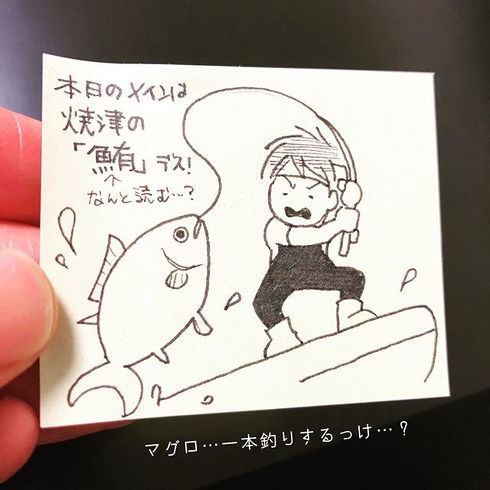 本日のメインは
焼津の
「鮪」デス!
↑
なんと読む…?
マグロ…一本釣りするっけ…?